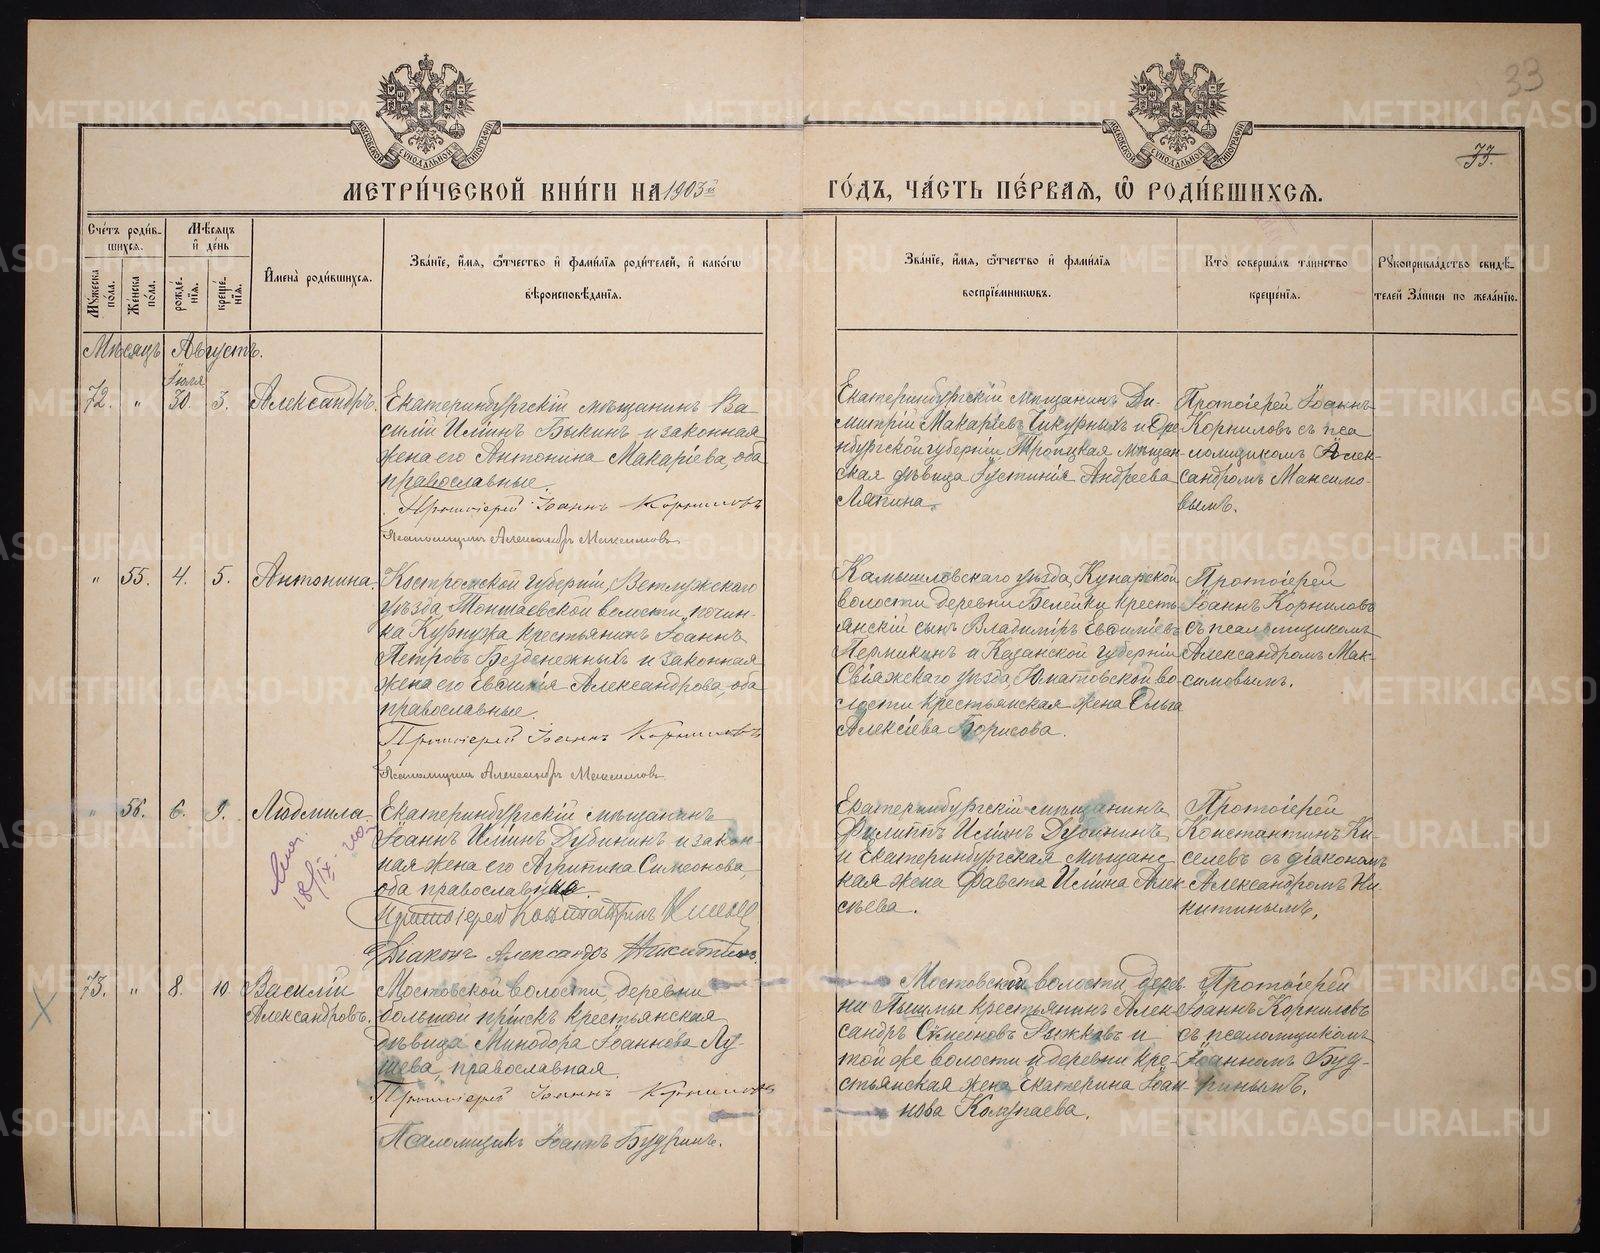 33
МОСКОВСКОЙ СѴНОДАЛЬНОЙ ТИПОГРАФІИ
МОСКОВСКОЙ СѴНОДАЛЬНОЙ ТИПОГРАФІИ
33.
МЕТРИ́ЧЕСКОЙ КНИ́ГИ НА 1903й
ГО́ДЪ, ЧА́СТЬ ПЕ́РВАЯ, Ѿ РОДИ́ВШИХСЯ.
Сче́тъ роди́вшихся.
Му́жеска по́ла.
Же́нска по́ла.
Мѣ́сяцъ и҆ де́нь
рожде́нїя.
креще́нїя.
И҆мена̀ роди́вшихся.
Зва́нїе, и҆́мя, ѻ҆́тчество и҆ фами́лїя роди́телей, и҆ како́гѡ
вѣроисповѣ́данїя.
Зва́нїе, и҆́мя, ѻ҆́тчество и҆ фами́лїя
воспрїе́мникѡвъ.
Кто̀ соверша́лъ та́инство
креще́нїя.
Рꙋкоприкла́дство свидѣ́-
телей за́писи по жела́нїю.
Мѣсяцъ Августъ.
72. " Іюля 30. 3. Александръ.
Екатеринбургскій мѣщанинъ Ва-
силій Илiинъ Быкинъ и законная
жена его Антонина Макаріева, оба
православные.
Протоіерей Іоаннъ Корниловъ
Псаломщикъ Александръ Максимовъ
Екатеринбургскій мѣщанинъ Ди-
митрій Макаріевъ Чикурныхъ и Оре
нбургской губерніи Троицкая мѣщан
ская дѣвица Іустинія Андреева
Ляпина.
Протоіерей Іоаннъ
Корниловъ съ пса
ломщикомъ Алек-
сандромъ Максимо-
вымъ.
" 55. 4. 5. Антонина.
Костромской губерніи, Ветлужскаго
уѣзда, Тоншаевской волости, почин-
ка Курнужа крестьянинъ Іоаннъ
Петровъ Безденежныхъ и законная
жена его Евѳимія Александрова, оба
православные.
Протоіерей Іоаннъ Корниловъ
Псаломщикъ Александръ Максимовъ
Камышловскаго уѣзда, Кунарской
волости деревни Белейки кресть-
янскій сынъ Владиміръ Евѳиміевъ
Пермикинъ и Казанской губерніи
Свіяжскаго уѣзда, Юматовской во-
лости крестьянская жена Ольга
Алексіева Борисова.
Протоіерей
Іоаннъ Корниловъ
съ псаломщикомъ
Александромъ Мак-
симовымъ.
" 56. 6. 9. Людмила.
18/IX
Екатеринбургскій мѣщанинъ
Іоаннъ Илiинъ Дубининъ и закон-
ная жена его Агрипина Симеонова,
оба православные.
Протоіерей Константинъ Киселевъ
Діаконъ Александръ Никитинъ.
Екатеринбургскій мѣщанинъ
Филиппъ Илiинъ Дубининъ
и Екатеринбургская мѣщанс
кая жена Фавста Илiина Алек
сѣева.
Протоіерей
Константинъ Ки-
селевъ съ діакономъ
Александромъ Ни-
китинымъ.
73. " 8. 10. Василій
Александровъ.
Мостовской волости, деревни
большой пріискъ крестьянская
дѣвица Минодора Іоаннова Лу-
шева, православная.
Протоіерей Іоаннъ Корниловъ
Псаломщикъ Іоаннъ Будринъ.
Мостовской волости, дерев
ни Пышмы крестьянинъ Алек
сандръ Симеоновъ Рыжковъ и
той же волости и деревни кре-
стьянская жена Екатерина Іоан
нова Колупаева.
Протоіерей
Іоаннъ Корниловъ
съ псаломщикомъ
Іоанномъ Буд-
ринымъ.
METRIKI.GASO-URAL.RU